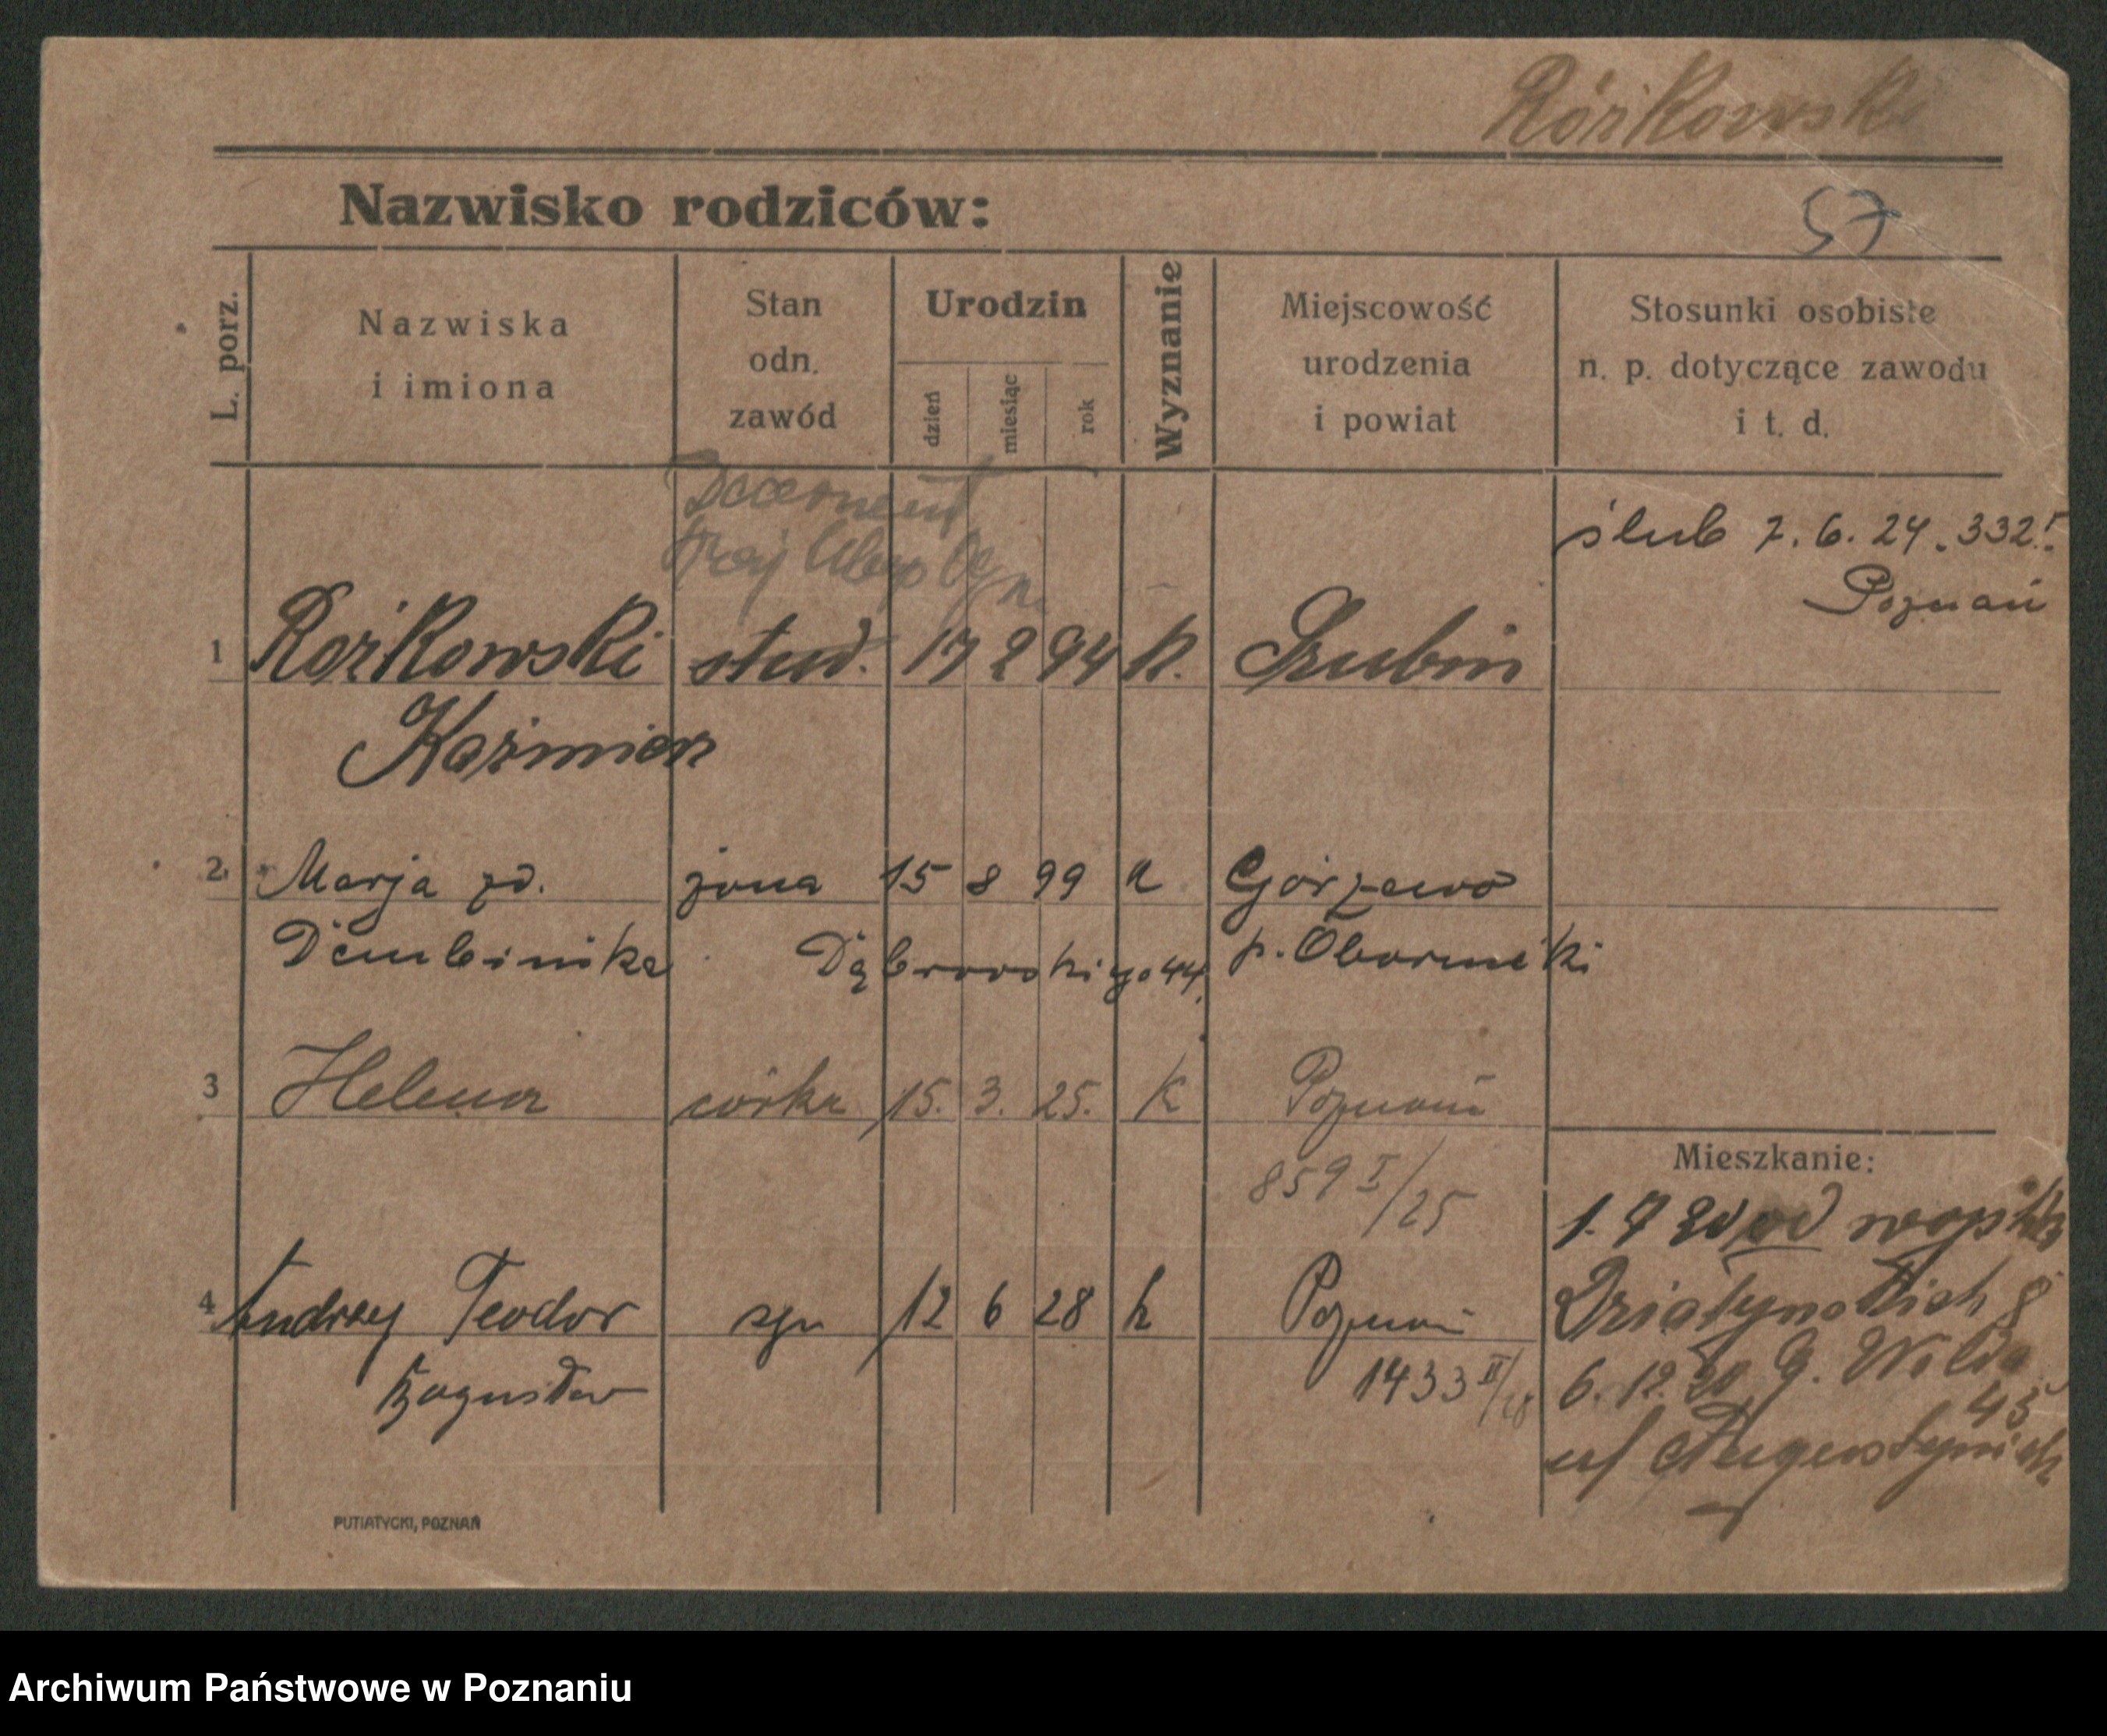 Różkowski
Nazwisko rodziców:
57
L. porz.
Nazwiska
i imiona
Stan
odn.
zawód
Urodzin
dzień
miesiąc
rok
Wyznanie
Miejscowość
urodzenia
i powiat
Stosunki osobiste
n. p. dotyczące zawodu
i t. d.
ślub 7. 6. 24. 332 I.
Poznań
1 Rożkowski stud. 17 2 94 k. Szubin
Kaźmierz
2. Marja zd. żona 15 8 99 k Górzewo
Dembińska Dąbrowskiego 44. p. Oborniki
3 Helena córka 15. 3. 25. k Poznań
859 I/25
4 Andrzej Teodor syn 12 6 28 k Poznań
Bogusław
1433 II/28
Mieszkanie:
1. 7 20 od
Działyńskich 8
6. 12. 20 G. Wilda
45
PUTIATYCKI, POZNAŃ
Archiwum Państwowe w Poznaniu